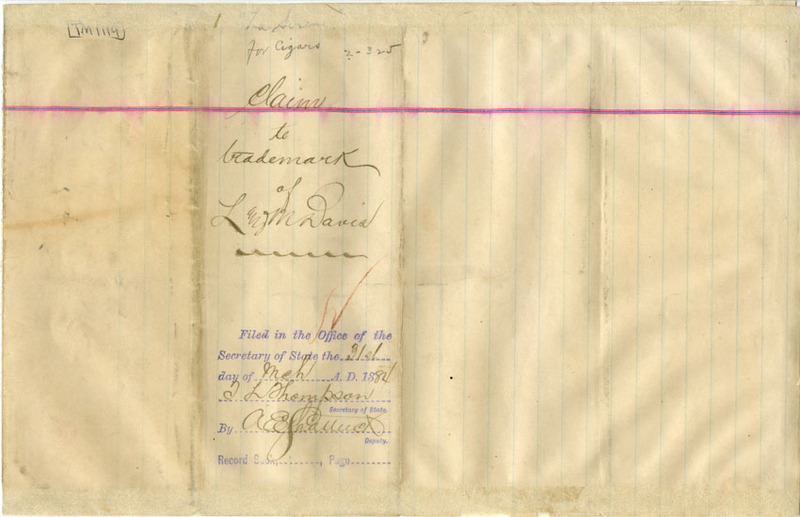 TM1119
for Cigars 2-325
Claim
to
trademark
of
L & M Davis
Filed in the Office of the
Secretary of State the 31st
day of Mch A. D. 1884
T L Thompson
Secretary of State.
By A E
Deputy.
Record Book, , Page